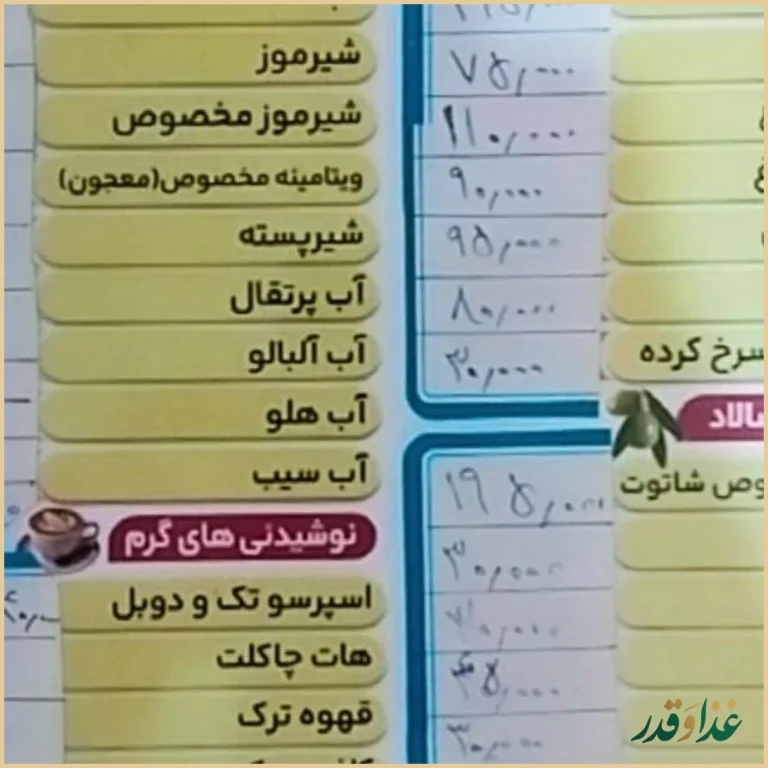 شیرموز
شیرموز مخصوص
ویتامینه مخصوص(معجون)
شیرپسته
آب پرتقال
آب آلبالو
آب هلو
آب سیب
نوشیدنی های گرم
اسپرسو تک و دوبل
هات چاکلت
قهوه ترک
۷۵,۰۰۰
۱۱۰,۰۰۰
۹۰,۰۰۰
۹۵,۰۰۰
۸۰,۰۰۰
۳۰,۰۰۰
۱۹۵,۰۰۰
۳۰,۰۰۰
۷۰,۰۰۰
۴۵,۰۰۰
۳۰,۰۰۰
سرخ کرده
سالاد
شاتوت
غذا و قدر